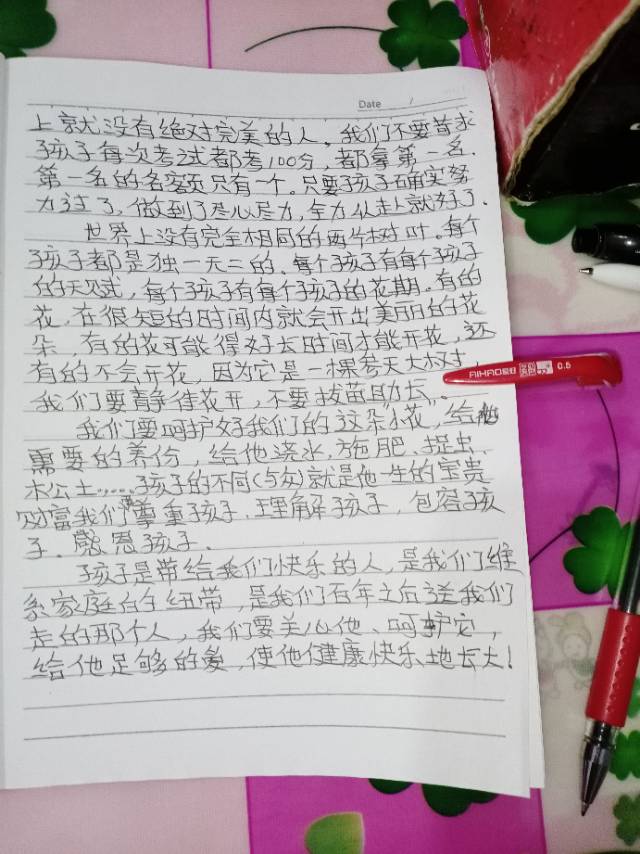 Date /
上就没有绝对完美的人。我们不要苛求
孩子每次考试都考100分，都拿第一名.
第一名的名额只有一个。只要孩子确实努
力过了，做到了尽心尽力，全力以赴就好了.
世界上没有完全相同的两片树叶，每个
孩子都是独一无二的。每个孩子有每个孩子
的天赋，每个孩子有每个孩子的花期。有的
花，在很短的时间内就会开出美丽的花
朵，有的花可能得好长时间才能开花，还
有的不会开花，因为它是一棵参天大树，
我们要静待花开，不要拔苗助长。
我们要呵护好我们的这朵小花，给他
需要的养份，给他浇水、施肥、捉虫、
松土……孩子的不同(与众)就是他一生的宝贵
财富我们要尊重孩子，理解孩子，包容孩
子、感恩孩子。
孩子是带给我们快乐的人，是我们维
系家庭的纽带，是我们百年之后送我们
走的那个人，我们要关心他、呵护它，
给他足够的爱，使他健康快乐地长大！
AIHAO 0.5